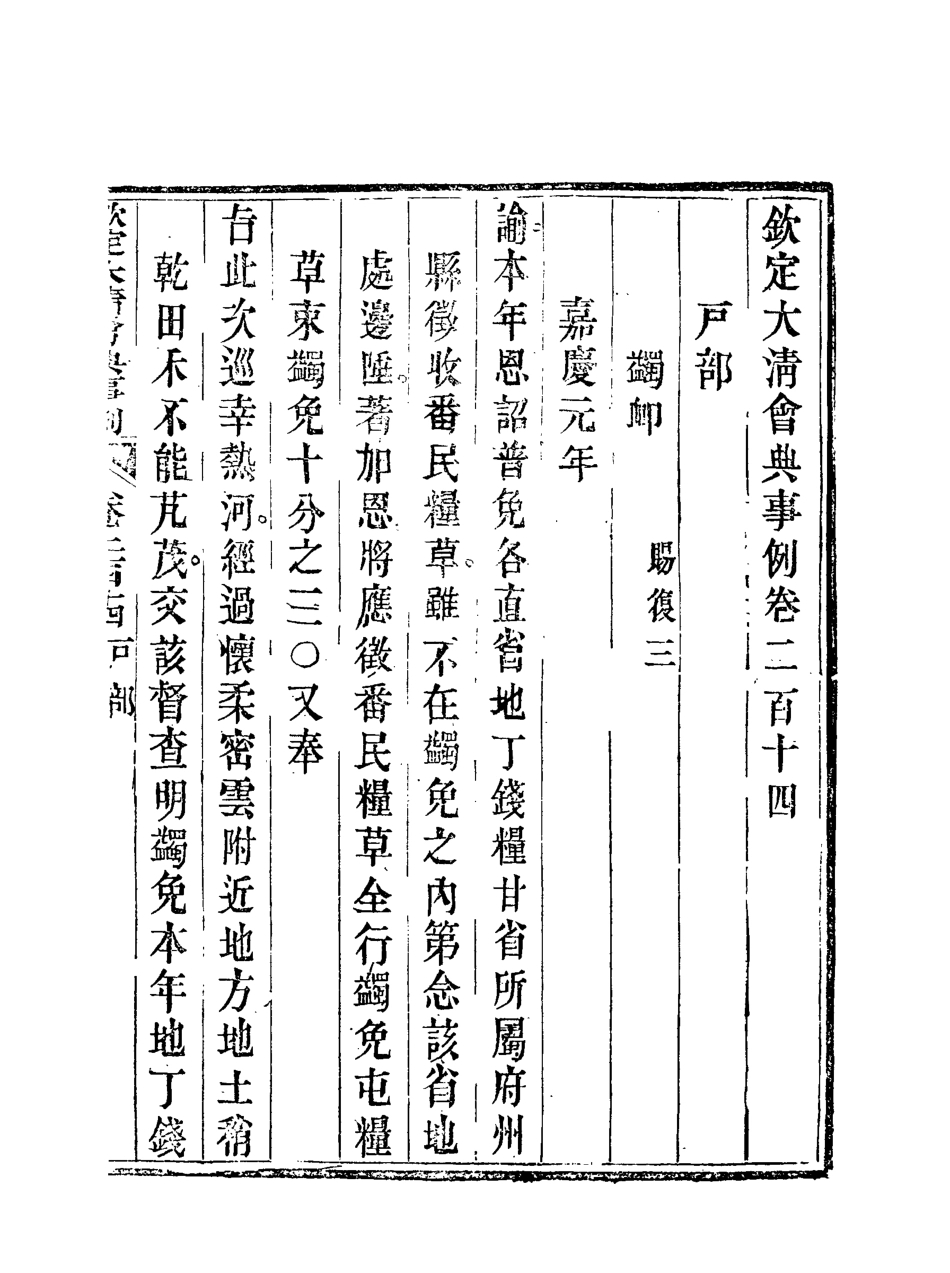 欽定大清會典事例卷二百十四
戸部
蠲䘏 賜復三
嘉慶元年
諭本年恩詔普免各直省地丁錢糧甘省所屬府州
縣徵收番民糧草。雖不在蠲免之內第念該省地
處邊陲。著加恩將應徵番民糧草全行蠲免屯糧
草束蠲免十分之三○又奉
旨此次巡幸熱河。經過懷柔密雲附近地方地土稍
乾田禾不能芃茂。交該督查明蠲免本年地丁錢
欽定大清會典事例 卷二百十四 戸部